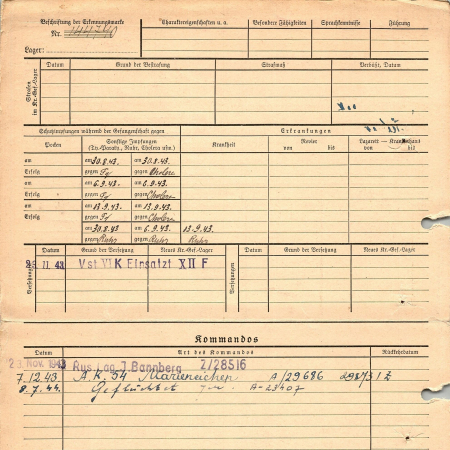 Beschriftung der Erkennungsmarke
Nr.
Lager:
Charaktereigenschaften u. a.
Besondere Fähigkeiten
Sprachkenntnisse
Führung
Strafen im Kr.-Gef.-Lager
Datum
Grund der Bestrafung
Strafmaß
Verbüßt, Datum
Schutzimpfungen während der Gefangenschaft gegen
Erkrankungen
Pocken
Sonstige Impfungen
(Ty.-Paraty., Ruhr, Cholera usw.)
Krankheit
Revier
von bis
Lazarett — Krankenhaus
von bis
am am 30.8.43. am 30.8.43.
Erfolg gegen Ty gegen Cholera
am am 6.9.43. am 6.9.43.
Erfolg gegen Ty gegen Cholera
am am 13.9.43. am 13.9.43.
Erfolg gegen Ty gegen Cholera
am 30.8.43 am 6.9.43. 13.9.43.
gegen Ruhr gegen Ruhr Ruhr
Versetzungen
Datum
Grund der Versetzung
Neues Kr.-Gef.-Lager
Versetzungen
Datum
Grund der Versetzung
Neues Kr.-Gef.-Lager
26. 11. 43 Vst VI K Einsatzt XII F
Kommandos
Datum
Art des Kommandos
Rückkehrdatum
Nov. 1943 Rus. Lag. J. Bannberg Z/28516
7.12.43 A.K. 54 Marieneichen A/29686
8.7.44. Geflüchtet A-23407